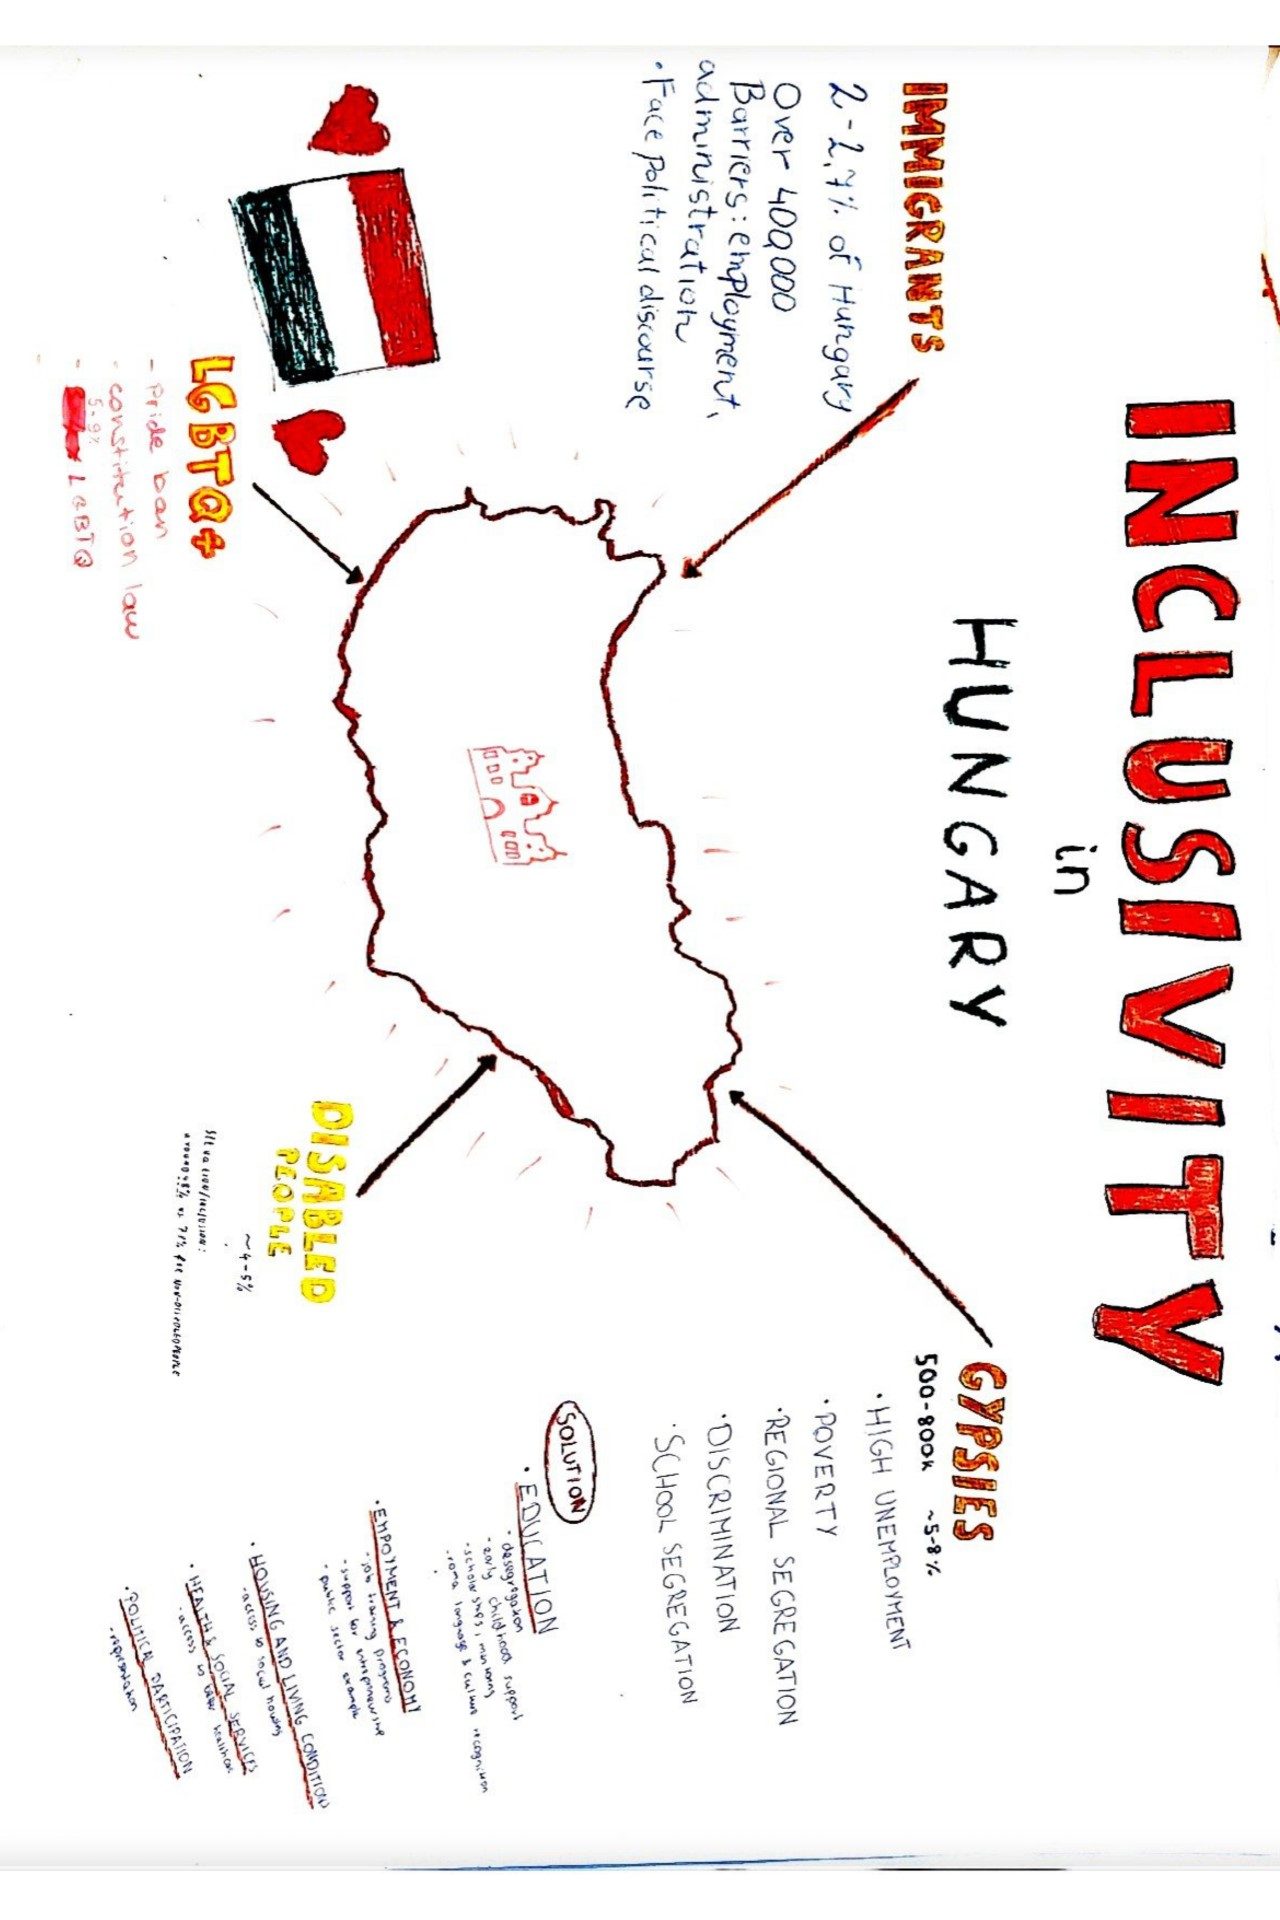 INCLUSIVITY
in
HUNGARY
IMMIGRANTS
2-2,7% of Hungary
Over 400,000
Barriers: employment,
administration
• Face political discourse
LGBTQ+
- Pride ban
- constitution law
5-9%
- LGBTQ
GYPSIES
500-800k ~5-8%
• HIGH UNEMPLOYMENT
• POVERTY
• REGIONAL SEGREGATION
• DISCRIMINATION
• SCHOOL SEGREGATION
DISABLED
PEOPLE
~4-5%
SOLUTION
• EDUCATION
• desegregation
- early childhood support
- scholarships,
- roma language & culture recognition
• EMPOYMENT & ECONOMY
- job training programs
- support for
- public sector example
• HOUSING AND LIVING CONDITION
- access to social housing
• HEALTH & SOCIAL SERVICES
- access to
• POLITICAL PARTICIPATION
- representation